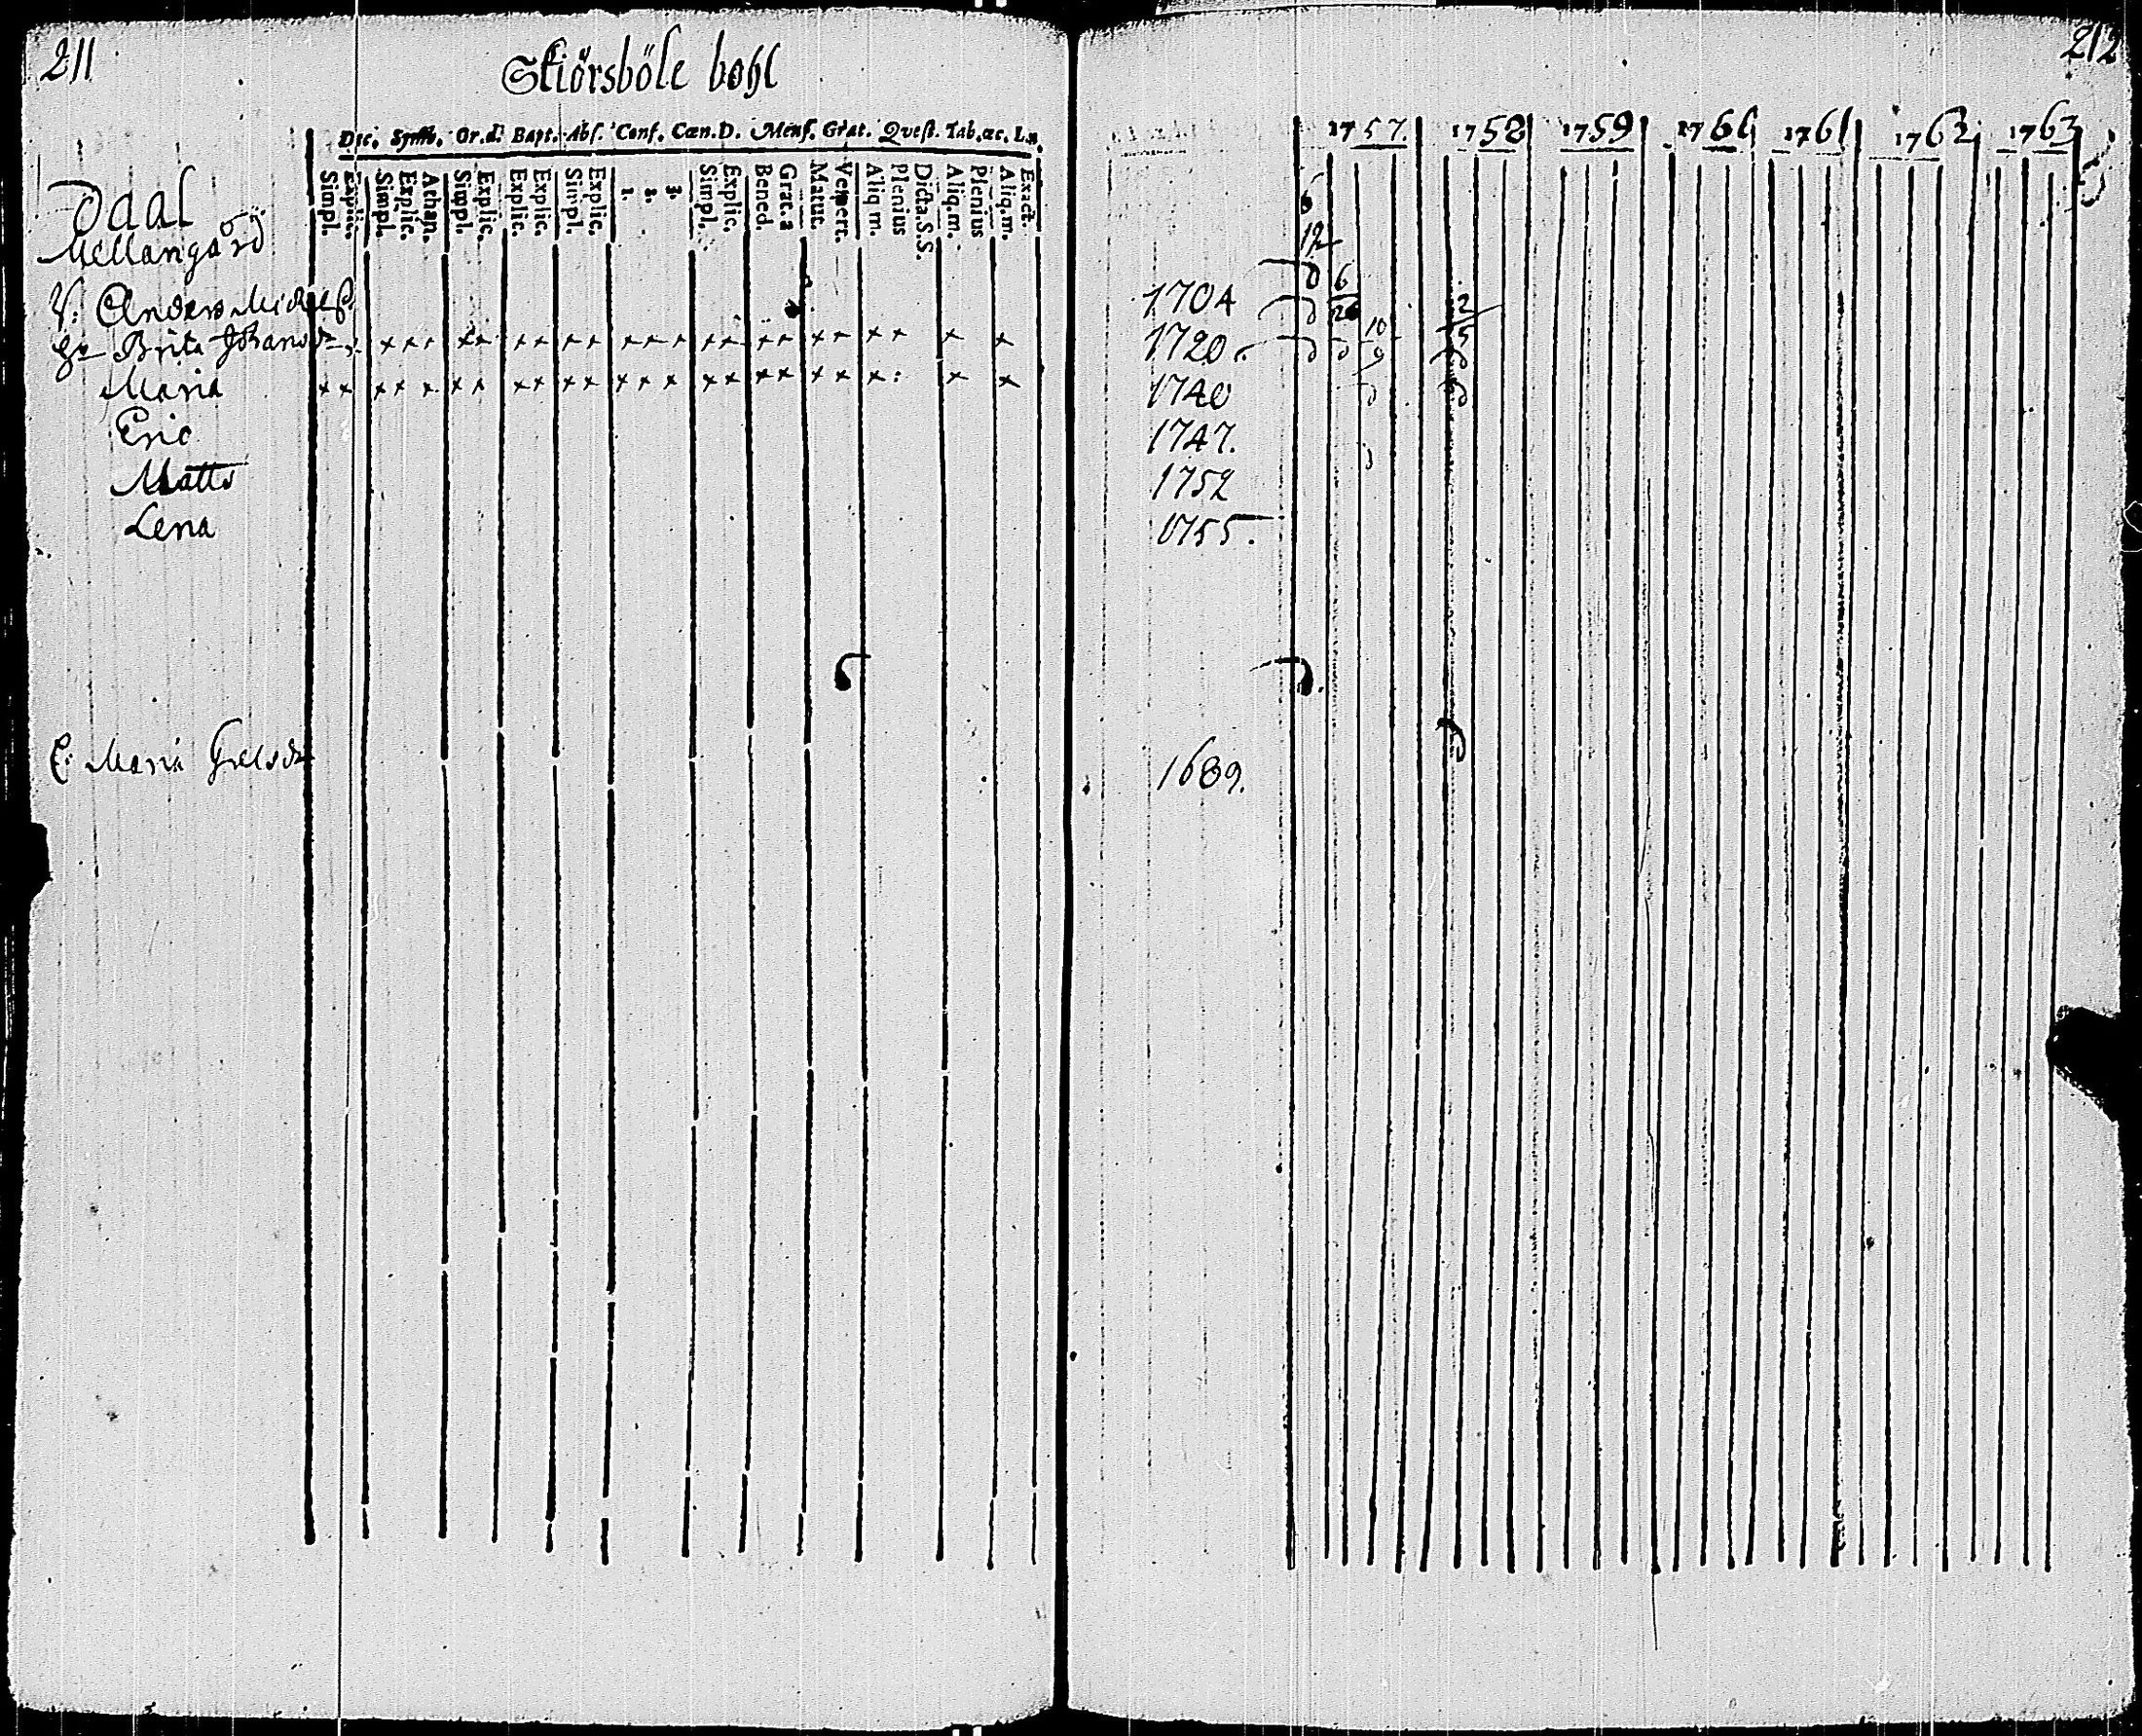 211
Skiörsböle bohl
Dec. Symb. Or.d. Bapt. Abs. Conf. Cœn.D. Mens. Grat. Quest. Tab.œc. L.n.
Simpl. Explic. Simpl. Explic. Athan. Simpl. Explic. Explic. Explic. Simpl. Explic. 1. 2. 3. Simpl. Explic. Bened. Grat.a Matut. Vespert. Aliq.m. Plenius Dicta.S.S. Aliq.m. Plenius Aliq.m. Exact.
Daal
Mellangård
Anders
Brita Johansdr
Maria
Eric
Matts
Lena
Maria
212
1757. 1758 1759 1760 1761 1762 1763
6
12
6
1704
26
2
10
5
1720
9
1740
1747.
1752
1755.
1689.